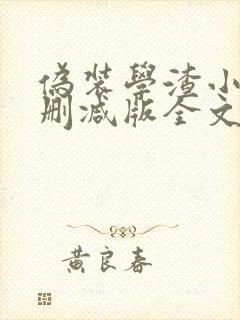 偽裝學渣小
刪減版全文
黃良春